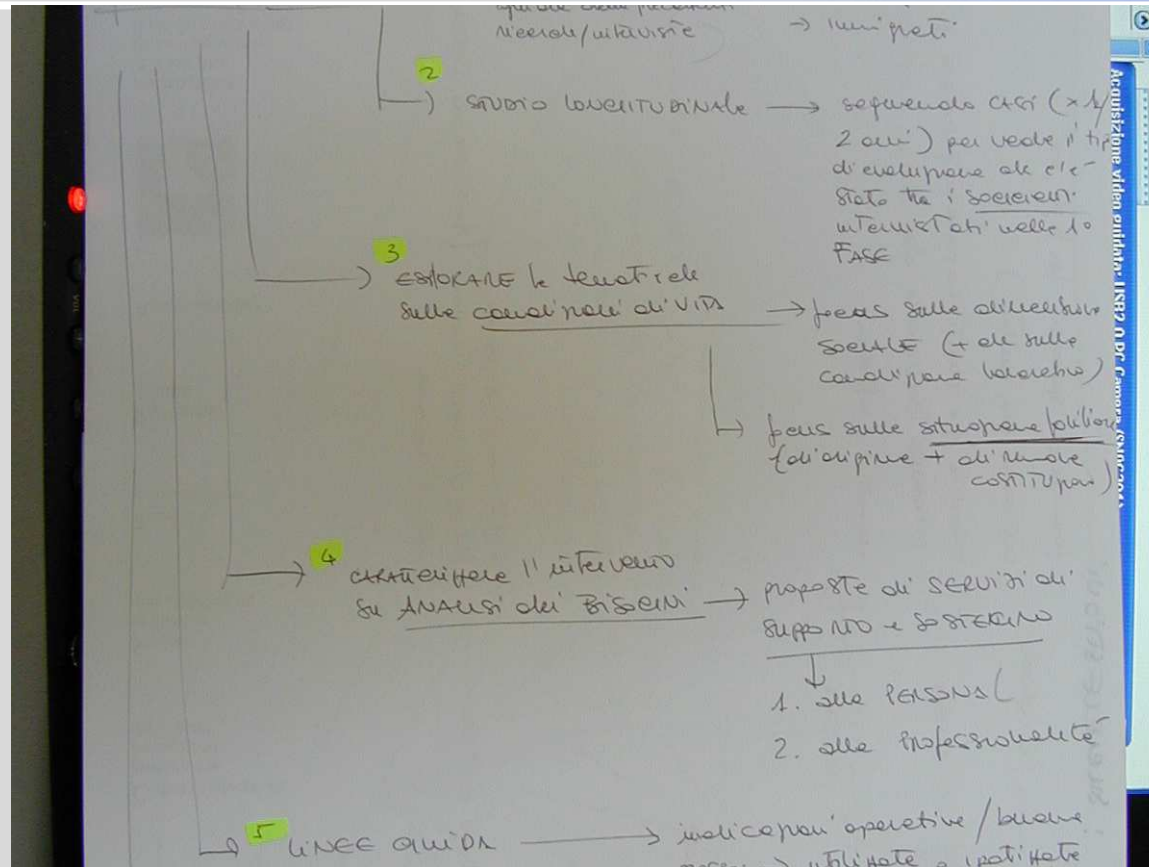 ricerche/interviste → immigrati
2
STUDIO LONGITUDINALE → seguendo CASI (x 1/
2 anni) per vedere il tip
di evoluzione che c'è
stato tra i soggetti
intervistati nelle 1°
FASE
3
ESPLORARE le tematiche
sulle condizioni di VITA → focus sulle dimensioni
SOCIALE (+ che sulle
condizione lavorativa)
focus sulle situazione
(di origine + di nuove
COSTITUZIONI)
4
CARATTERIZZARE l'intervento
su ANALISI dei BISOGNI → proposte di SERVIZI di
SUPPORTO e SOSTEGNO
1. alla PERSONA
2. alla professionalità
5
LINEE GUIDA → indicazioni operative / buone
Acquisizione video guidata: USB2.0 PC Camera (SN9C201)
VOL